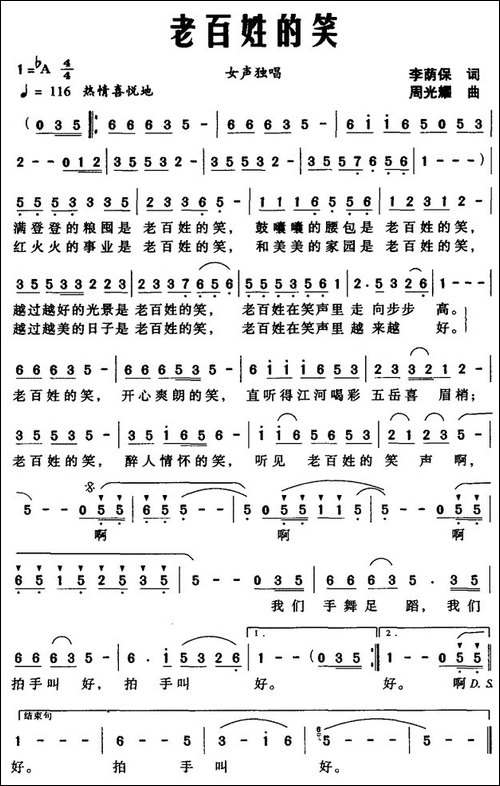 老百姓的笑
1=♭A 4/4
女声独唱
李荫保 词
♩= 116 热情喜悦地
周光耀 曲
( 0 3 5 ‖: 6 6 6 3 5 - | 6 6 6 3 5 - | 6 i i 6 5 0 5 3 |
2 - - 0 1 2 | 3 5 5 3 2 - | 3 5 5 3 2 - | 3 5 5 7 6 5 6 | 1 - - ) |
5 5 5 3 3 3 5 | 2 3 3 6 5 - | 1 1 1 6 5 5 6 | 1 2 3 1 2 - |
满登登的粮囤是 老百姓的笑, 鼓囊囊的腰包是 老百姓的笑,
红火火的事业是 老百姓的笑, 和美美的家园是 老百姓的笑,
3 5 5 3 3 2 2 3 | 2 3 3 7 6 5 6 | 3 5 3 5 6 5 3 2 1 | 2 . 5 3 2 6 | 1 - - 0 |
越过越好的光景是 老百姓的笑, 老百姓在笑声里 走 向步步 高。
越过越美的日子是 老百姓的笑, 老百姓在笑声里 越 来越 好。
6 6 6 3 5 - | 6 6 6 3 5 - | 6 i i i 6 5 3 | 2 1 3 3 2 - |
老百姓的笑, 开心爽朗的笑, 直听得江河喝彩 五岳喜 眉梢;
5 5 5 3 2 - | 3 5 1 6 5 6 - | i i 6 5 6 5 3 | 2 1 2 3 5 - |
老百姓的笑, 醉人情怀的笑, 听见 老百姓的 笑 声 啊,
5 - - 0 5 5 | 2 5 5 5 - | 5 0 5 5 1 1 5 | 5 - - 0 5 5 |
啊 啊 啊
6 5 1 5 2 5 3 5 | 5 - - 0 3 5 | 6 6 6 3 5 . 3 5 |
我们 手舞足 蹈, 我们
6 6 6 3 5 - | 6 . i 5 3 2 6 | 1 - - ( 0 3 5 :‖ 1 - - 0 5 5 ‖
1.
2.
拍手叫 好, 拍 手叫 好。 好。 啊 D.S.
结束句
1 - - - | 6 - - 5 | 3 - i 6 | 5 - - - | 5 - - ‖
好。 拍 手 叫 好。